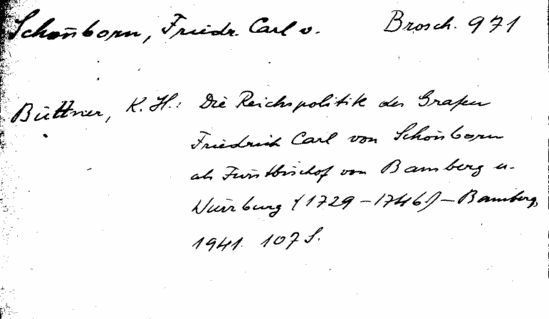 Schönborn, Friedr. Carl v. Brosch. 971
Büttner, K. H.: Die Reichspolitik des Grafen
Friedrich Carl von Schönborn
als Fürstbischof von Bamberg u.
Würzburg (1729-1746) - Bamberg,
1941. 107 S.